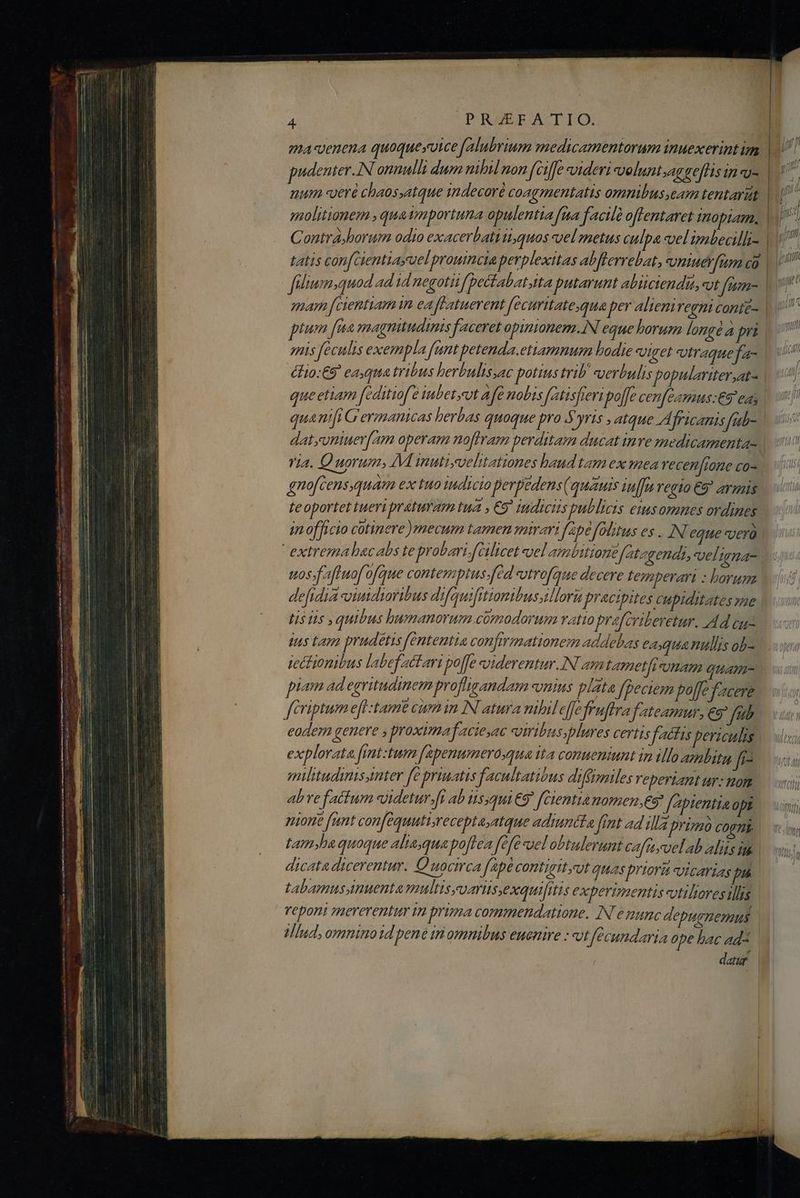 4 PRÆFATIO.
ma venena quoque, vice salubrium medicamentorum inuexerint im
pudenter. Nonnulli dum nihil non scisse videri volunt, aggestis in v-
num verè chaos, atque indecorè coagmentatis omnibus, eam tentarūt
molitionem, qua importuna opulentia sua facilè ostentaret inopiam.
Contrà, horum odio exacerbati ij, quos vel metus culpæ vel imbecilli-
tatis conscientia, vel prouincia perplexitas absterrebat, vniuersum cō
silium, quod ad id negotii spectabat, ita putarunt abiiciendū, vt sum-
mam scientiam in ea statuerent securitate, qua per alieni regni contē-
ptum sua magnitudinis faceret opinionem. Neque horum longè à pri
mis seculis exempla sunt petenda. etiamnum hodie viget vtraque fa-
ctio: & ea, qua tribus herbulis, ac potius trib' verbulis populariter, at-
que etiam seditiosè iubet, vt à se nobis satisfieri posse censeamus: & ea,
qua nisi Germanicas herbas quoque pro Syris, atque Africanis sub-
dat, vniuersam operam nostram perditam ducat in re medicamenta-
ria. Quorum, Minuti, velitationes haud tam ex mea recensione co-
gnoscens, quàm ex tuo iudicio perpēdens (quāuis iussu regio & armis
te oportet tueri præturam tuā, & iudiciis publicis eius omnes ordines
in officio cōtinere) mecum tamen mirari sæpe solitus es. Neque verò
extrema hæc abs te probari, scilicet vel ambitionē satagendi, vel igna-
uos, fastuososque contemptus. sed vtrosque decere temperari: horum
desidiā viuidioribus disquisitionibus, illorū præcipites cupiditates me
tis iis, quibus humanorum cōmodorum ratio præscriberetur. Ad cu-
ius tam prudētis sententia confirmationem addebas ea, qua nullis ob-
iectionibus labefactari posse viderentur. Nam tametsi vnam quam-
piam ad egritudinem profligandam vnius plātæ speciem posse facere
scriptum est: tamē cum in Natura nihil esse frustra fateamur, & sub
eodem genere, proxima facie, ac viribus, plures certis factis periculis
explorata sint: tum sæpenumerò, qua ita conueniunt in illo ambitu si-
militudinis, inter se priuatis facultatibus dissimiles reperiantur: non
ab re factum videtur, si ab iis, qui & scientiæ nomen, & sapientiæ opi
nionē sunt consequuti, recepta, atque adiuncta sint ad illā primò cogni
tam, hæ quoque aliæ, quæ postea sese vel obtulerunt casu, vel ab aliis in
dicata dicerentur. Quocirca sæpè contigit, vt quas priorū vicarias pu
tabamus, inuenta multis, variis, exquisitis experimentis vtiliores illis
reponi mererentur in prima commendatione. Ne nunc depugnemus
illud, omnino id penè in omnibus euenire: vt secundaria ope hac ad-
datur